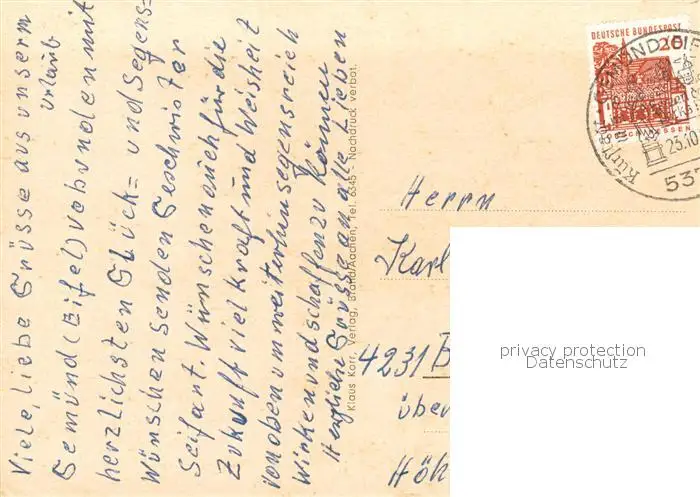 Viele, liebe Grüsse aus unserm
Urlaub
Gemünd (Eifel) verbunden mit
herzlichsten Glück= und Segens=
Wünschen senden Geschwister
Seifart. Wünschen auch für die
Zukunft viel Kraft und Weisheit
von oben um weiterhin segensreich
Wirken und schaffen zu können
Herzliche Grüße an alle Lieben
Klaus Korr, Verlag, Brand/Aachen, Tel. 6345 - Nachdruck verbot.
DEUTSCHE BUNDESPOST
20
Herrn
Karl
4231 B
über
Höh
privacy protection
Datenschutz